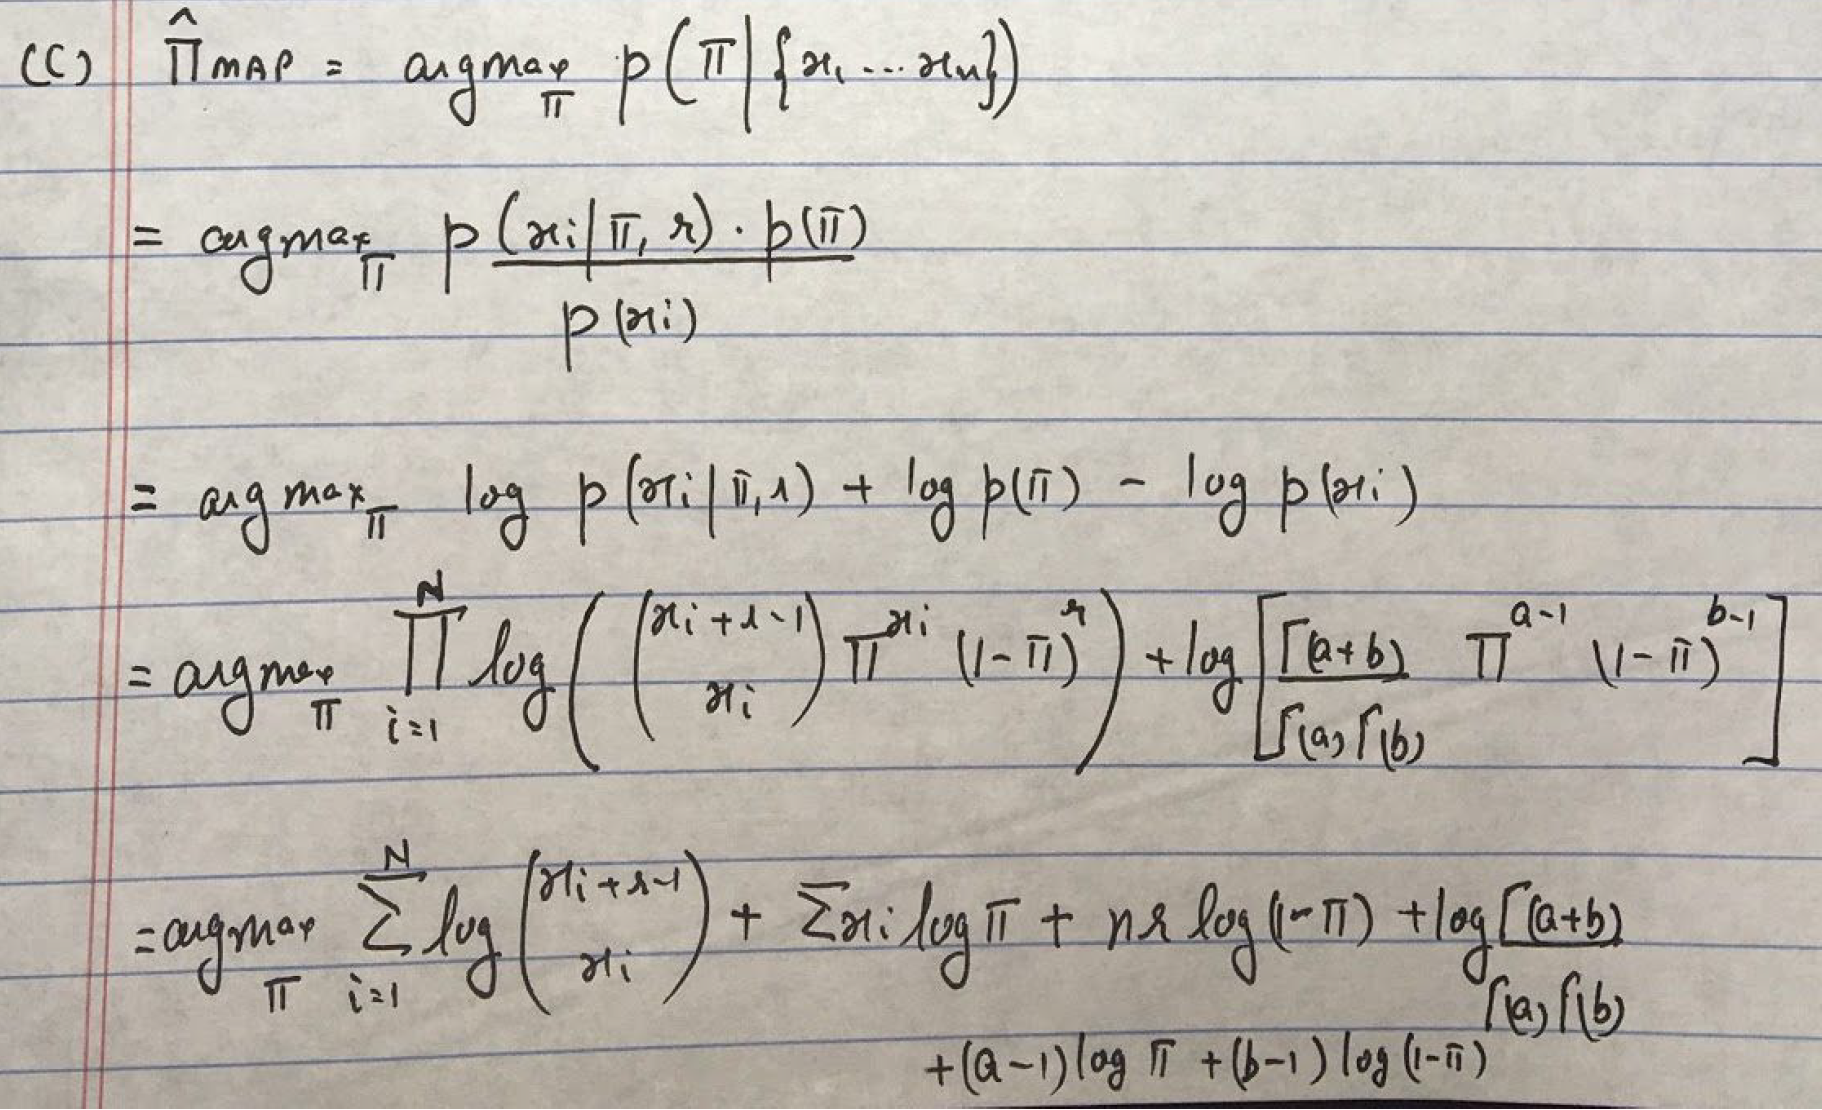 (C) π̂ MAP = argmax π p(π | {x₁ ... xₙ})
= argmax π p(xi | π, r) · p(π)
p(xi)
= argmax π log p(xi | π, r) + log p(π) - log p(xi)
= argmax π ∏ i=1 N log ( (xi + r - 1 xi) π^xi (1-π)^r ) + log [ Γ(a+b) / Γ(a) Γ(b) π^a-1 (1-π)^b-1 ]
= argmax π Σ i=1 N log (xi + r-1 xi) + Σxi log π + nr log (1-π) + log Γ(a+b) / Γ(a) Γ(b)
+ (a-1) log π + (b-1) log (1-π)